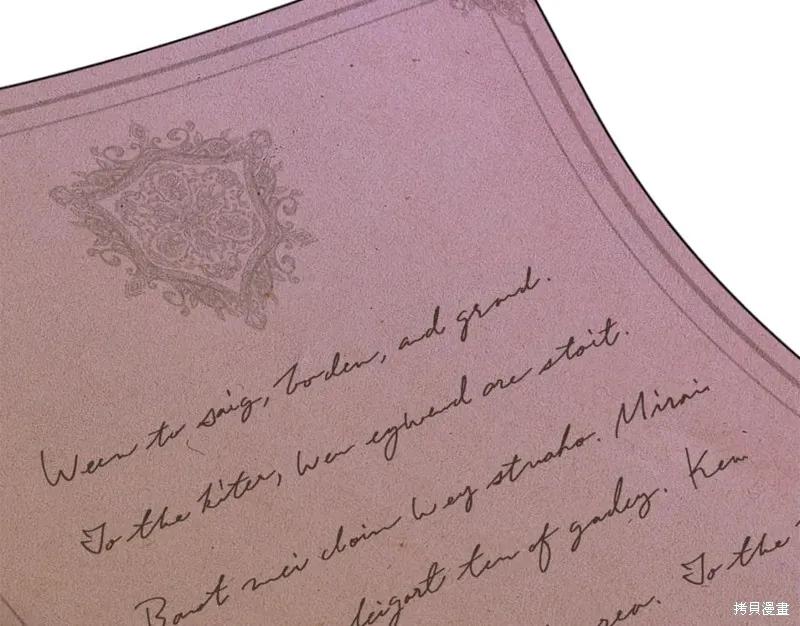 Ween to saig, boden, and grond.
To the kiter, wer egwend are stoit.
Barot mei cloin wey struaho. Mirai
leigart ten of gadey. Ken
rea. To the
拷貝漫畫